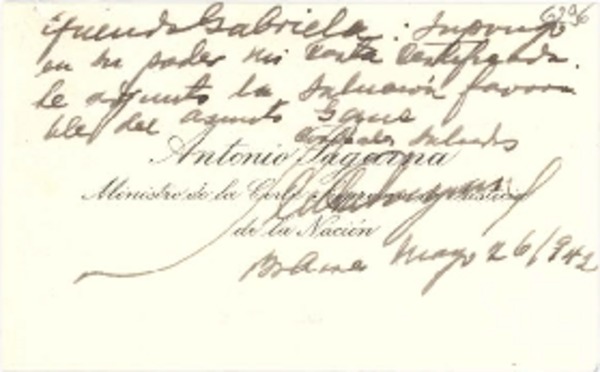 Querida Gabriela: Supongo 6296
en su poder mi carta certificada.
Le adjunto la solución favora
ble del asunto
cordiales saludos
Antonio Sagarna
Ministro de la Corte Suprema de Justicia
de la Nación
Bs Aires Mayo 26/942